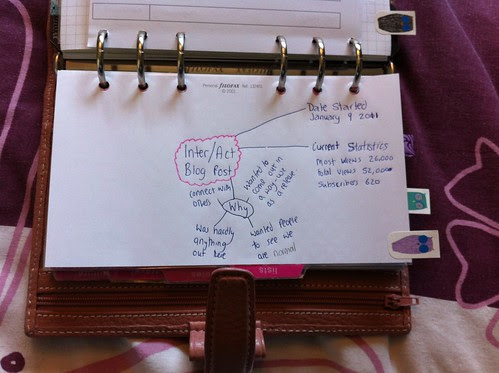 Personal filofax
Date Started
January 9 2011
Inter/Act
Blog Post
Current Statistics
Most views 26,000
total views 52,000
Subscribers 620
Connect with
others
Why
Wanted to
come out in
a way - use
as a release
Was hardly
anything
out here
wanted people
to see we
are normal
lists